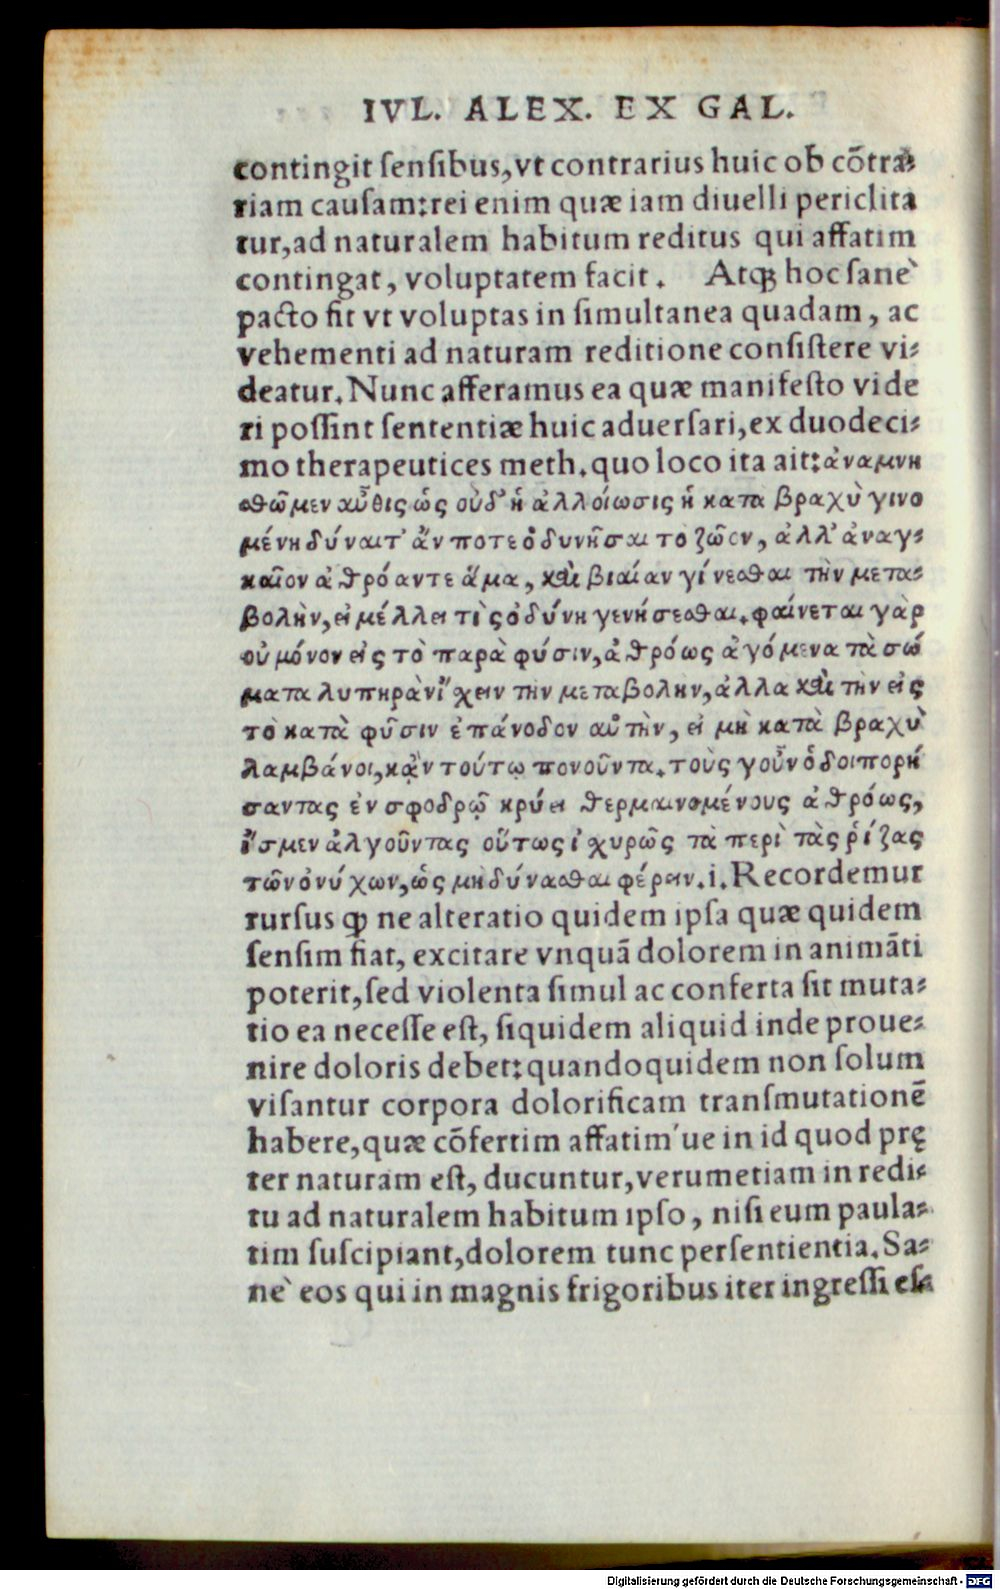 IVL. ALEX. EX GAL.
contingit ſenſibus, vt contrarius huic ob cõtra⸗
riam cauſam: rei enim quæ iam diuelli periclita
tur, ad naturalem habitum reditus qui affatim
contingat, voluptatem facit. Atqꝫ hoc ſane`
pacto fit vt voluptas in ſimultanea quadam, ac
vehementi ad naturam reditione conſiſtere vi⸗
deatur. Nunc afferamus ea quæ manifeſto vide
ri poſſint ſententiæ huic aduerſari, ex duodeci⸗
mo therapeutices meth. quo loco ita ait: ἀναμνη
σθῶμεν αὖθις ὡς οὐδ' ἡ ἀλλοίωσις ἡ κατα βραχὺ γινο
μένη δύναιτ' ἄν ποτε ὀδυνῆσαι το ζῶον, ἀλλ' ἀναγ⸗
καῖον ἀθρόαντε ἅμα, καὶ βιαίαν γίνεσθαι τὴν μετα⸗
βολὴν, εἰ μέλλει τὶς ὀδύνη γενήσεσθαι. φαίνεται γὰρ
οὐ μόνον εἰς τὸ παρὰ φύσιν, ἀθρόως ἀγόμενα τὰ σώ
ματα λυπηρὰν ἴχειν την μεταβολην, ἀλλα καὶ τὴν εἰς
τὸ κατὰ φῦσιν ἐπάνοδον αὐτὴν, εἰ μὴ κατὰ βραχὺ
λαμβάνοι, κᾂν τούτῳ πονοῦντα. τοὺς γοῦν ὁδοιπορή
σαντας ἐν σφοδρῷ κρύει θερμαινομένους ἀθρόως,
ἴσμεν ἀλγοῦντας οὕτως ἰχυρῶς τὰ περὶ τὰς ῥίζας
τῶν ὀνύχων, ὡς μὴ δύνασθαι φέρειν. i. Recordemur
rurſus ꝙ ne alteratio quidem ipſa quæ quidem
ſenſim fiat, excitare vnquã dolorem in animãti
poterit, ſed violenta ſimul ac conferta ſit muta⸗
tio ea neceſſe eſt, ſiquidem aliquid inde proue⸗
nire doloris debet: quandoquidem non ſolum
viſantur corpora dolorificam tranſmutationẽ
habere, quæ cõfertim affatim'ue in id quod prę
ter naturam eſt, ducuntur, verumetiam in redi⸗
tu ad naturalem habitum ipſo, niſi eum paula⸗
tim ſuſcipiant, dolorem tunc perſentientia. Sa⸗
ne` eos qui in magnis frigoribus iter ingreſſi eſ⸗
Digitalisierung gefördert durch die Deutsche Forschungsgemeinschaft - DFG